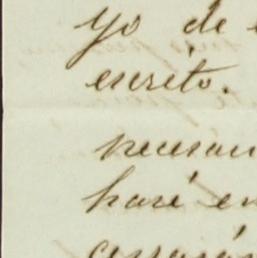 yo de
escrito.
necesari
haré en